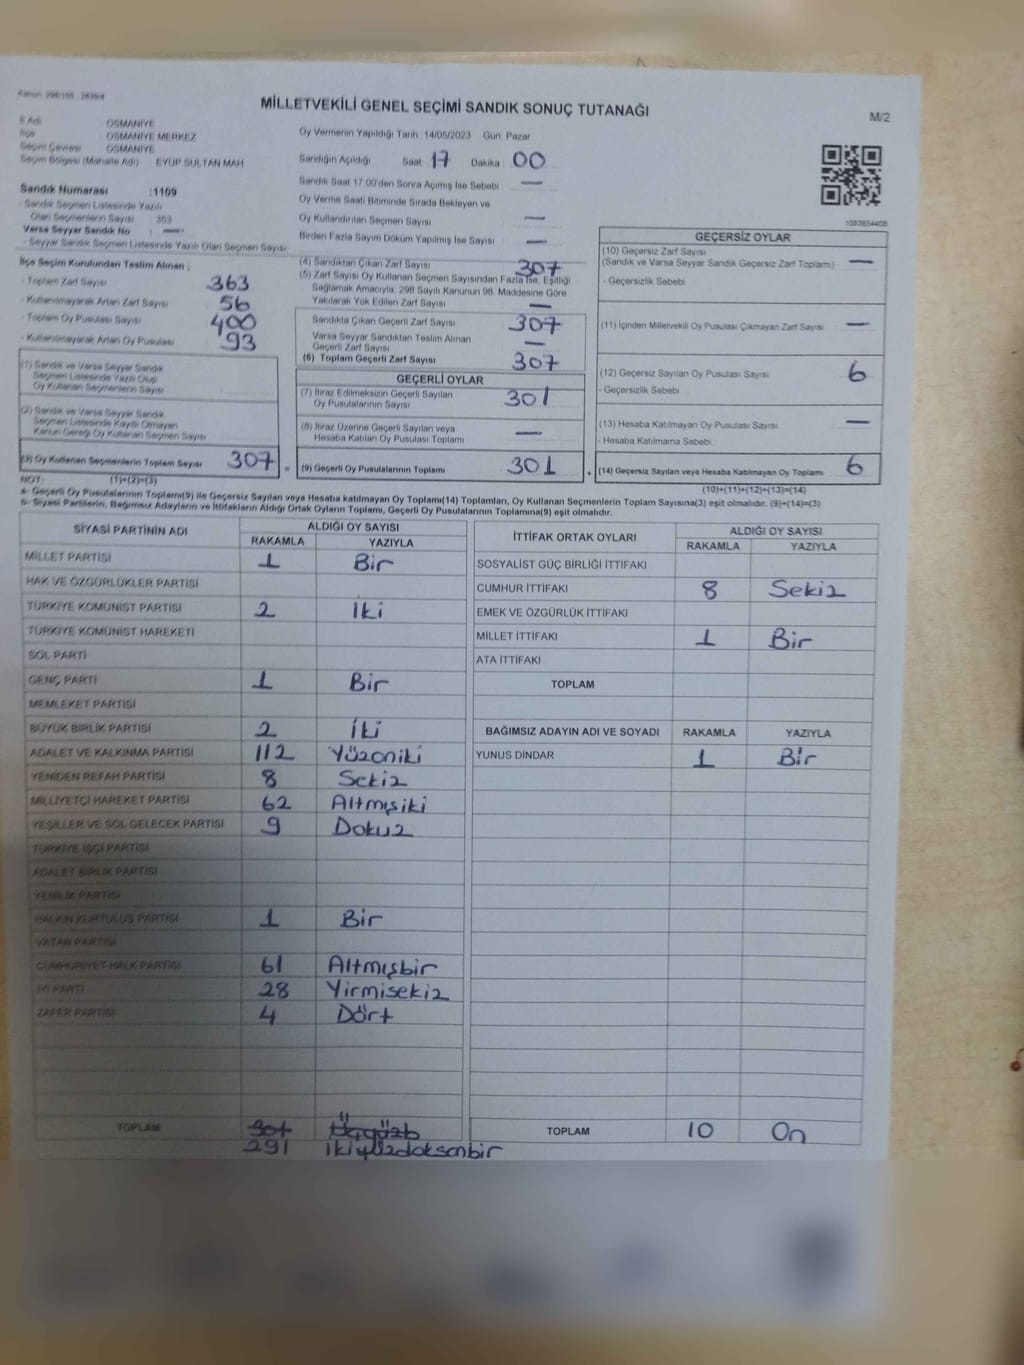 Kanun: 298/105 - 2839/4
MİLLETVEKİLİ GENEL SEÇİMİ SANDIK SONUÇ TUTANAĞI
M/2
İl Adı : OSMANİYE
İlçe : OSMANİYE MERKEZ
Seçim Çevresi : OSMANİYE
Seçim Bölgesi (Mahalle Adı) : EYÜP SULTAN MAH
Oy Vermenin Yapıldığı Tarih: 14/05/2023 Gün: Pazar
Sandığın Açıldığı Saat 17 Dakika: 00
Sandık Saat 17.00'den Sonra Açılmış İse Sebebi —
Oy Verme Saati Bitiminde Sırada Bekleyen ve
Oy Kullandırılan Seçmen Sayısı —
Birden Fazla Sayım Döküm Yapılmış İse Sayısı —
Sandık Numarası :1109
- Sandık Seçmen Listesinde Yazılı
Olan Seçmenlerin Sayısı : 353
Varsa Seyyar Sandık No : —
- Seyyar Sandık Seçmen Listesinde Yazılı Olan Seçmen Sayısı:
İlçe Seçim Kurulundan Teslim Alınan ;
- Toplam Zarf Sayısı 363
- Kullanılmayarak Artan Zarf Sayısı 56
- Toplam Oy Pusulası Sayısı 400
- Kullanılmayarak Artan Oy Pusulası 93
(1) Sandık ve Varsa Seyyar Sandık
Seçmen Listesinde Yazılı Olup
Oy Kullanan Seçmenlerin Sayısı
(2) Sandık ve Varsa Seyyar Sandık
Seçmen Listesinde Kayıtlı Olmayan
Kanun Gereği Oy Kullanan Seçmen Sayısı
(3) Oy Kullanan Seçmenlerin Toplam Sayısı 307
(4) Sandıktan Çıkan Zarf Sayısı 307
(5) Zarf Sayısı Oy Kullanan Seçmen Sayısından Fazla İse, Eşitliği
Sağlamak Amacıyla, 298 Sayılı Kanunun 98. Maddesine Göre
Yakılarak Yok Edilen Zarf Sayısı —
Sandıkta Çıkan Geçerli Zarf Sayısı 307
Varsa Seyyar Sandıktan Teslim Alınan
Geçerli Zarf Sayısı —
(6) Toplam Geçerli Zarf Sayısı 307
GEÇERLİ OYLAR
(7) İtiraz Edilmeksizin Geçerli Sayılan
Oy Pusulalarının Sayısı 301
(8) İtiraz Üzerine Geçerli Sayılan veya
Hesaba Katılan Oy Pusulası Toplamı —
= (9) Geçerli Oy Pusulalarının Toplamı 301
1083654408
GEÇERSİZ OYLAR
(10) Geçersiz Zarf Sayısı
(Sandık ve Varsa Seyyar Sandık Geçersiz Zarf Toplamı) —
- Geçersizlik Sebebi :
(11) İçinden Milletvekili Oy Pusulası Çıkmayan Zarf Sayısı —
(12) Geçersiz Sayılan Oy Pusulası Sayısı 6
- Geçersizlik Sebebi :
(13) Hesaba Katılmayan Oy Pusulası Sayısı —
- Hesaba Katılmama Sebebi :
+ (14) Geçersiz Sayılan veya Hesaba Katılmayan Oy Toplamı 6
NOT: (1)+(2)=(3)
(10)+(11)+(12)+(13)=(14)
a- Geçerli Oy Pusulalarının Toplamı(9) ile Geçersiz Sayılan veya Hesaba katılmayan Oy Toplamı(14) Toplamları, Oy Kullanan Seçmenlerin Toplam Sayısına(3) eşit olmalıdır. (9)+(14)=(3)
b- Siyasi Partilerin, Bağımsız Adayların ve İttifakların Aldığı Ortak Oyların Toplamı, Geçerli Oy Pusulalarının Toplamına(9) eşit olmalıdır.
SİYASİ PARTİNİN ADI ALDIĞI OY SAYISI
RAKAMLA YAZIYLA
MİLLET PARTİSİ 1 Bir
HAK VE ÖZGÜRLÜKLER PARTİSİ
TÜRKİYE KOMÜNİST PARTİSİ 2 iki
TÜRKİYE KOMÜNİST HAREKETİ
SOL PARTİ
GENÇ PARTİ 1 Bir
MEMLEKET PARTİSİ
BÜYÜK BİRLİK PARTİSİ 2 İki
ADALET VE KALKINMA PARTİSİ 112 Yüzoniki
YENİDEN REFAH PARTİSİ 8 Sekiz
MİLLİYETÇİ HAREKET PARTİSİ 62 Altmışiki
YEŞİLLER VE SOL GELECEK PARTİSİ 9 Dokuz
TÜRKİYE İŞÇİ PARTİSİ
ADALET BİRLİK PARTİSİ
YENİLİK PARTİSİ
HALKIN KURTULUŞ PARTİSİ 1 Bir
VATAN PARTİSİ
CUMHURİYET HALK PARTİSİ 61 Altmışbir
İYİ PARTİ 28 Yirmisekiz
ZAFER PARTİSİ 4 Dört
TOPLAM
291 ikiyüzdoksanbir
İTTİFAK ORTAK OYLARI ALDIĞI OY SAYISI
RAKAMLA YAZIYLA
SOSYALİST GÜÇ BİRLİĞİ İTTİFAKI
CUMHUR İTTİFAKI 8 Sekiz
EMEK VE ÖZGÜRLÜK İTTİFAKI
MİLLET İTTİFAKI 1 Bir
ATA İTTİFAKI
TOPLAM
BAĞIMSIZ ADAYIN ADI VE SOYADI RAKAMLA YAZIYLA
YUNUS DİNDAR 1 Bir
TOPLAM 10 On